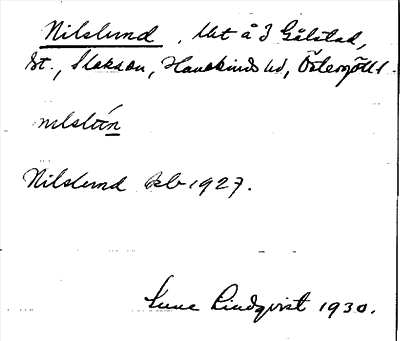 Nilslund, Utt å 3 Gålstad,
st., Slaka sn, Hanekinds hd, Östergötl.
nılslún
Nilslund Jsb 1927.
Sune Lindqvist 1930.